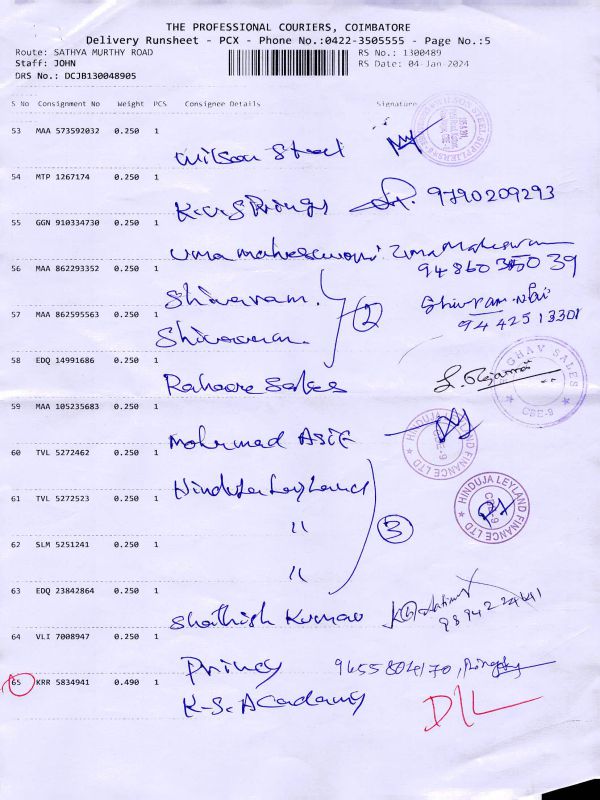 THE PROFESSIONAL COURIERS, COIMBATORE
Delivery Runsheet - PCX - Phone No.:0422-3505555 - Page No.:5
Route: SATHYA MURTHY ROAD
Staff: JOHN
DRS No.: DCJB130048905
RS No.: 1300489
RS Date: 04-Jan-2024
S No Consignment No Weight PCS Consignee Details Signature
53 MAA 573592032 0.250 1
Wilson Steel
54 MTP 1267174 0.250 1
K.V.SPrings 9790209293
55 GGN 910334730 0.250 1
Uma maheswari Uma Maheswari
56 MAA 862293352 0.250 1
Shivaram.
Shivram
57 MAA 862595563 0.250 1
Shivaram. 2 9442513301
58 EDQ 14991686 0.250 1
Sales
SALES
CBE-9
59 MAA 105235683 0.250 1
Mohamad ASIF
60 TVL 5272462 0.250 1
Hinduja Leyland
HINDUJA LEYLAND FINANCE LTD
CBE-9
61 TVL 5272523 0.250 1
"
3
HINDUJA LEYLAND FINANCE LTD
CBE-9
62 SLM 5251241 0.250 1
"
63 EDQ 23842864 0.250 1
Shathish Kumar
64 VLI 7008947 0.250 1
Princy
65 KRR 5834941 0.490 1
K.S. ACadamy D/L